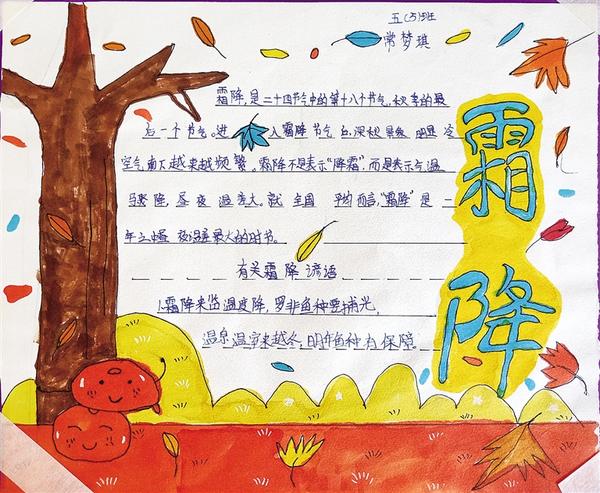 五(3)班
常梦琪
霜降
霜降,是二十四节气中的第十八个节气,秋季的最
后一个节气。进入霜降节气后,深秋景象明显,冷
空气南下越来越频繁。霜降不是表示“降霜”,而是表示气温
骤降、昼夜温差大。就全国平均而言,“霜降”是一
年之中昼夜温差最大的时节。
有关霜降谚语
1.霜降来临温度降,罗非鱼种要捕光,
温泉温室来越冬,明年鱼种有保障。